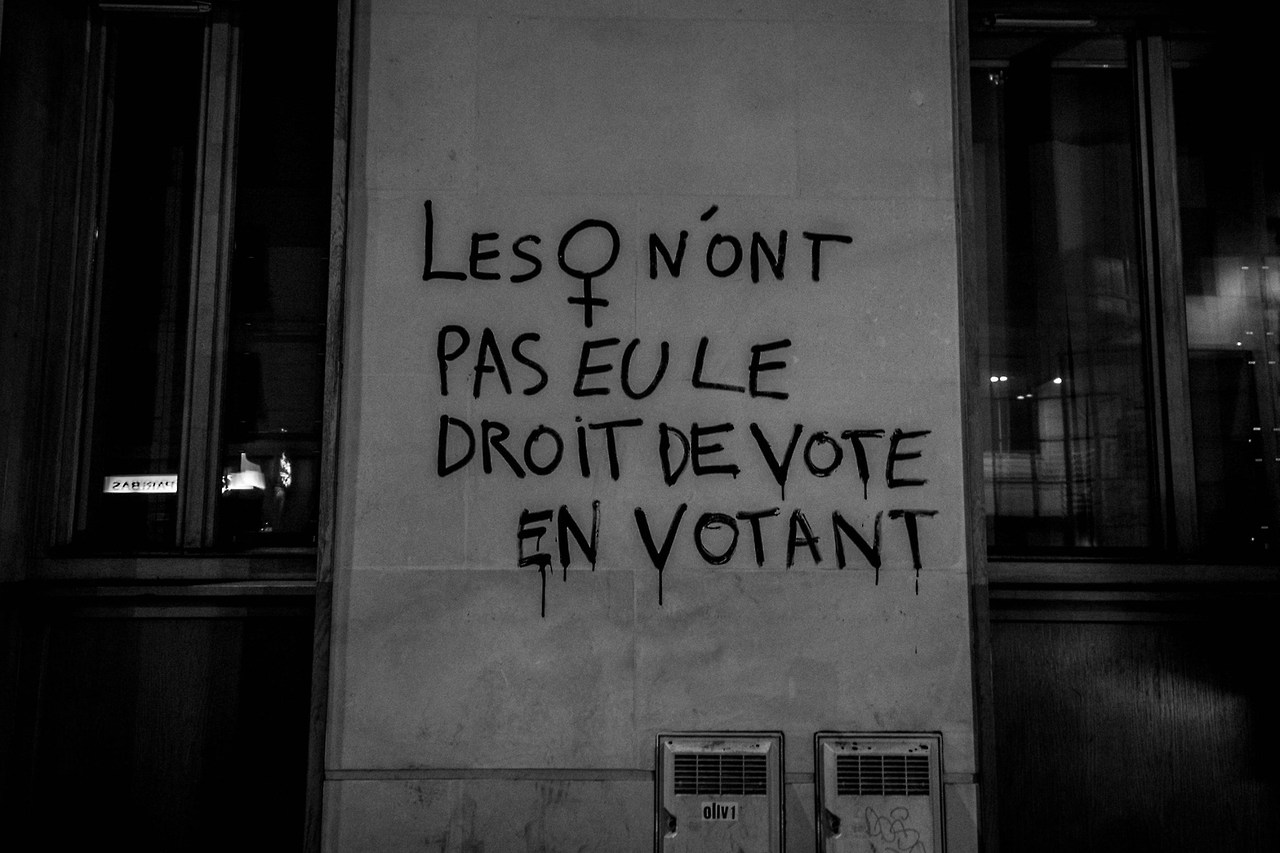 LES ♀ N'ONT
PAS EU LE
DROIT DE VOTE
EN VOTANT
PARIBAS
oliv1